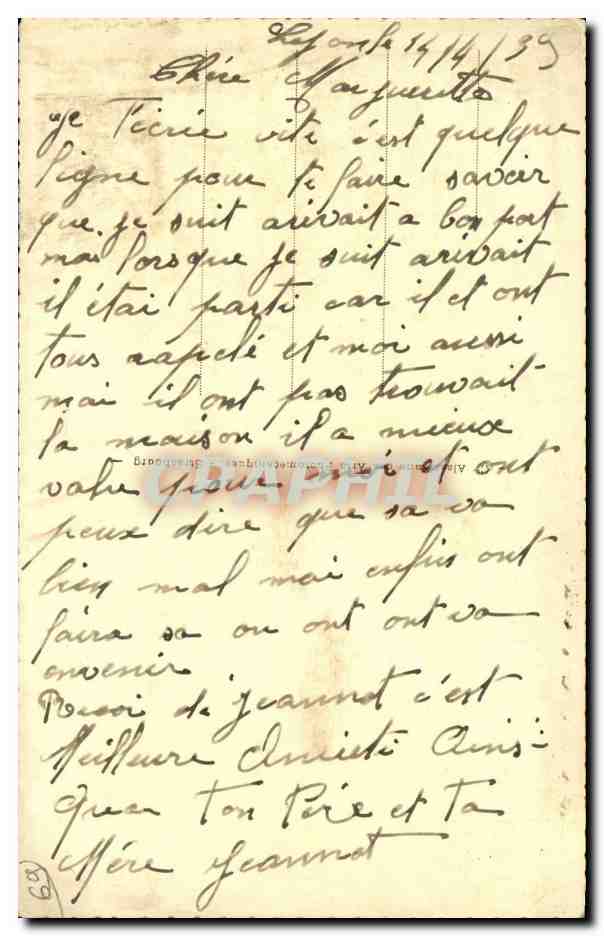 Lyon le 14/4/39
Chère Marguerette
Je T'écrie vite c'est quelque
ligne pour te faire savoir
que je suit arivait a bon port
mai lorsque je suit arivait
il étai parti car il et ont
tous rapelé et moi aussi
mai il ont pas trouvait
la maison il a mieux
valu pour moi et ont
peux dire que sa va
bien mal mai enfin ont
faira sa ou ont ont va
envenir
Recoi de Jeannot c'est
Meilleure Amieté Ainsi
qua Ton Père et Ta
Mère Jeannot
69
CPAPHIL
Arts Photomécaniques Strasbourg